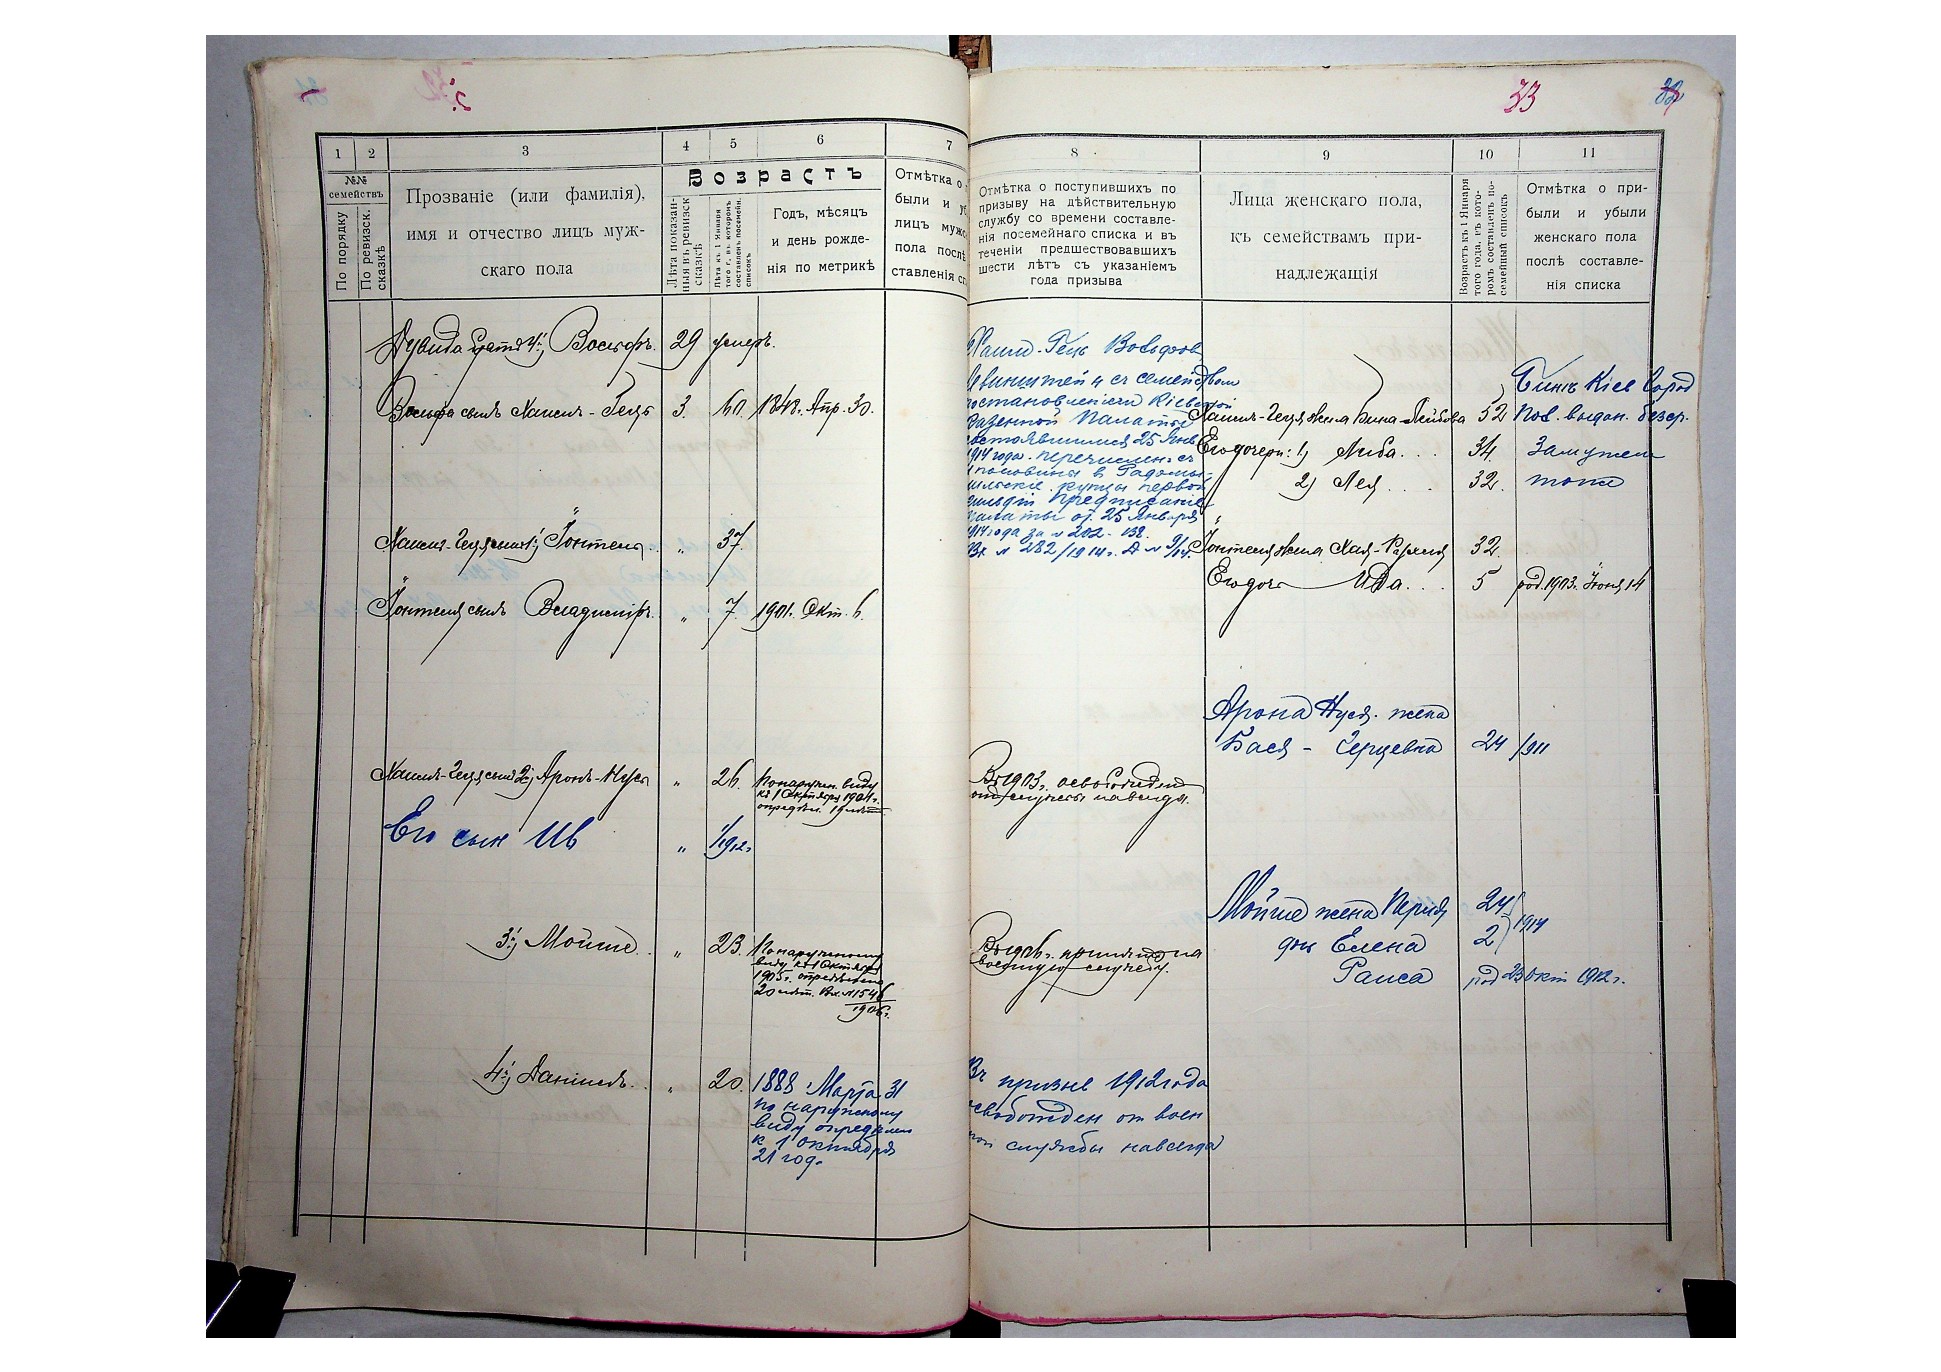 33
32
1
2
3
4
5
6
7
№№
семействъ
По порядку
По ревизск. сказкѣ
Прозваніе (или фамилія),
имя и отчество лицъ муж-
скаго пола
Возрастъ
Лѣта показан-
ныя въ ревизск
сказкѣ
Лѣта къ 1 Января
того г., въ которомъ
составленъ посемейн.
списокъ
Годъ, мѣсяцъ
и день рожде-
нія по метрикѣ
Отмѣтка о
были и уб
лицъ мужс
пола послѣ
ставленія сп
Вольфъ 29 умеръ.
Вольфа сынъ Хаимъ-Гецъ 3. 60. 1848. Апр. 30.
Хаимъ-Геця сынъ 1й Іонтель „ 37.
Іонтеля сынъ Владиміръ. „ 7. 1901. Окт. 6.
Хаимъ-Геця сынъ 2й Аронъ-Нусъ „ 26. По наружн. виду
къ 1 Октября 1901 г.
опредѣл. 19 лѣтъ
Его сын Ив „ 1/1912 г
3й Мойше „ 23. По наружному
виду къ 1 Октября
1905 г. опредѣлено
20 лѣт. Вх. № 1546
1906 г.
4й Даніилъ „ 20. 1888 Марта 31
по наружному
виду определен
к 1 октября
21 год.
8
9
10
11
Отмѣтка о поступившихъ по
призыву на дѣйствительную
службу со времени составле-
нія посемейнаго списка и въ
теченіи предшествовавшихъ
шести лѣтъ съ указаніемъ
года призыва
Лица женскаго пола,
къ семействамъ при-
надлежащія
Возрастъ къ 1 Января
того года, въ кото-
ромъ составленъ по-
семейный списокъ
Отмѣтка о при-
были и убыли
женскаго пола
послѣ составле-
нія списка
Хаим-Гецъ Вольфов
с семейством
постановлением Кіевской
Казенной Палаты
состоявшимся 25 Янв
1914 года перечислен с
1 половины в Радомы-
сльскіе купцы первой
гильдіи Предписаніе
палаты от 25 Января
1914 года за № 202
Вх № 282/1914 г.
Хаимъ-Геця жена Бина Лейбова 52
Его дочери: 1) Либа 34. Замужем
2) Лея 32. тоже
Іонтеля жена Хая-Рахиля 32.
Его дочь Ида 5 род. 1903. Іюня 14
Арона Нуся жена
Бася-Герцевна 24/1911
Въ 1903 г. освобожденъ
отъ службы навсегда.
Мойше жена Перля 24
дочь Елена 2 1914
Раиса род 23 Окт 1912 г.
Въ 1906 г. принятъ на
военную службу.
Въ призыв 1912 года
освобожден от воен
ной службы навсегда